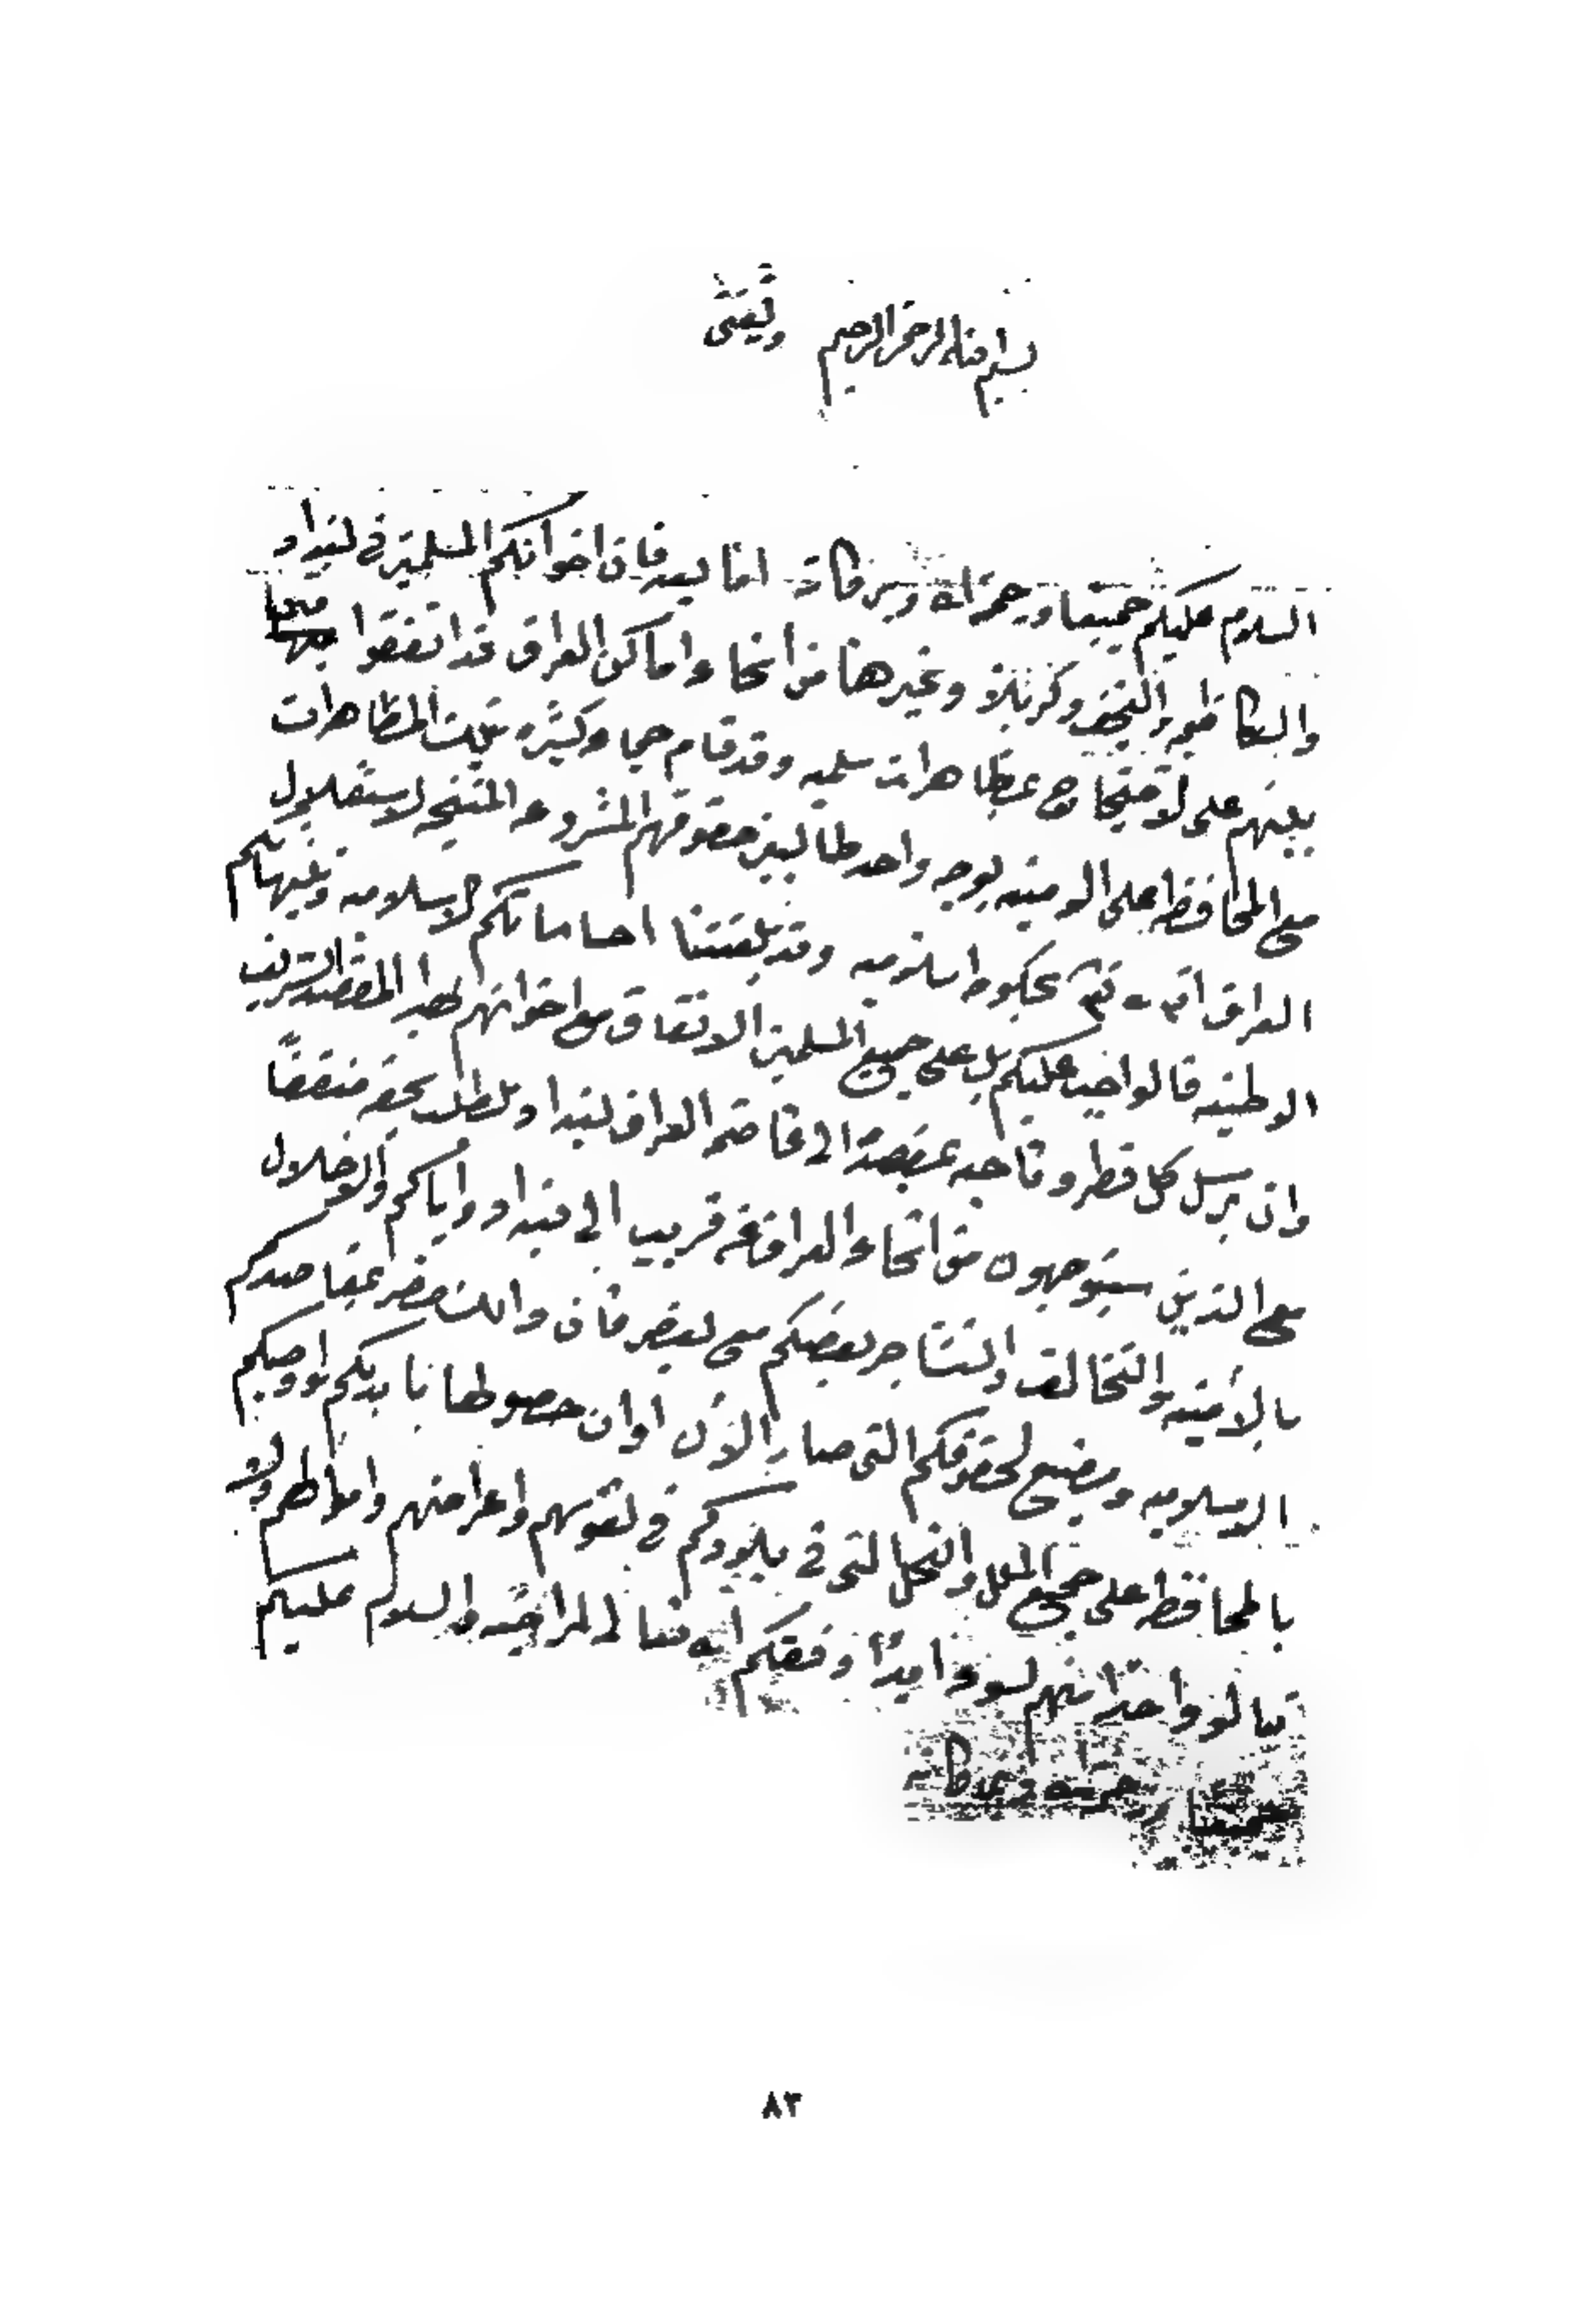 بسم الله الرحمن الرحيم وثقتي
السلام عليكم جميعا ورحمة الله وبركاته اما بعد فان اخوانكم المسلمين في بغداد
والكاظميه والنجف وكربلاء وغيرها من أنحاء واماكن العراق قد اتفقوا فيما
بينهم على الاحتجاج بمظاهرات سلميه وقد قام جماعه كثيره بتلك المظاهرات
مع المحافظه على الامنيه بوجه واحد طالبين حقوقهم المشروعه المنتجه لاستقلال
العراق انشاء بحكومه اسلاميه وقد بلغتنا احساساتكم الاسلاميه
الوطنيه فالواجب عليكم بل على جميع المسلمين الاتفاق مع اخوانهم لهذا المقصد الشريف
وان يرسل كل قطر وناحيه الى عاصمة العراق بغداد لطلب حقه متفقاً
مع الذين سيتوجهون من انحاء العراق عن قريب الى بغداد واياكم والاخلال
بالأمنيه والتخالف والتشاجر بعضكم مع بعض فان ذلك مضر بمقاصدكم
الاسلاميه ومضيع لحقوقكم التي صار الآن اوان حصولها بايديكم واوصيكم
بالمحافظه على جميع الملل والنحل التي في بلادكم في نفوسهم واعراضهم واموالهم ولا
تنالوا واحداً منهم بسوء ابداً وفقكم الله لما فيه والسلام عليكم
جميعا ورحمة الله وبركاته
٨٣